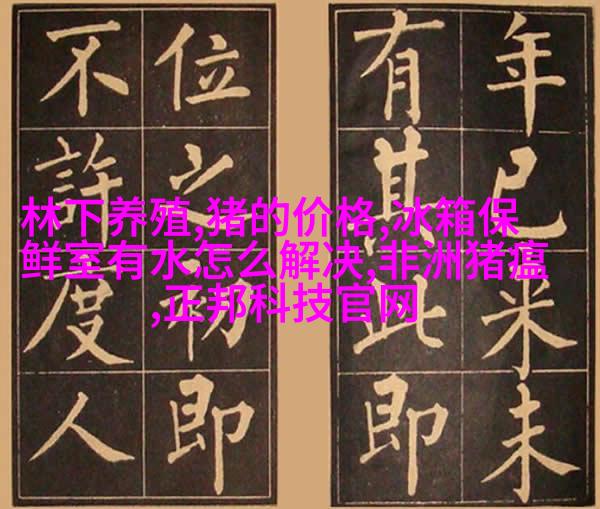 年已米未
有其此即
位之初即
不許度人
林下养殖,猪的价格,冰箱保
鲜室有水怎么解决,非洲猪瘟
,正邦科技官网